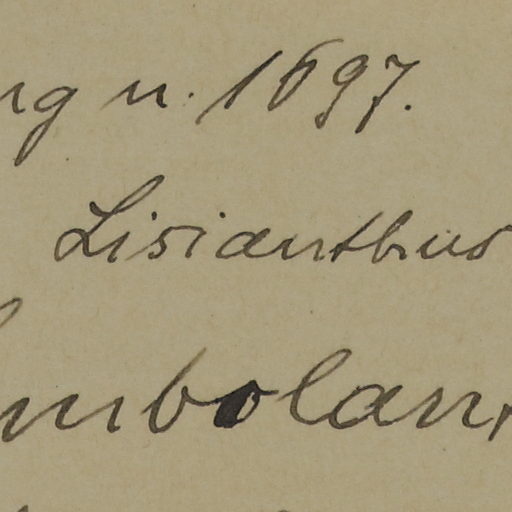 ng n. 1697.
Lisianthus
mbolan